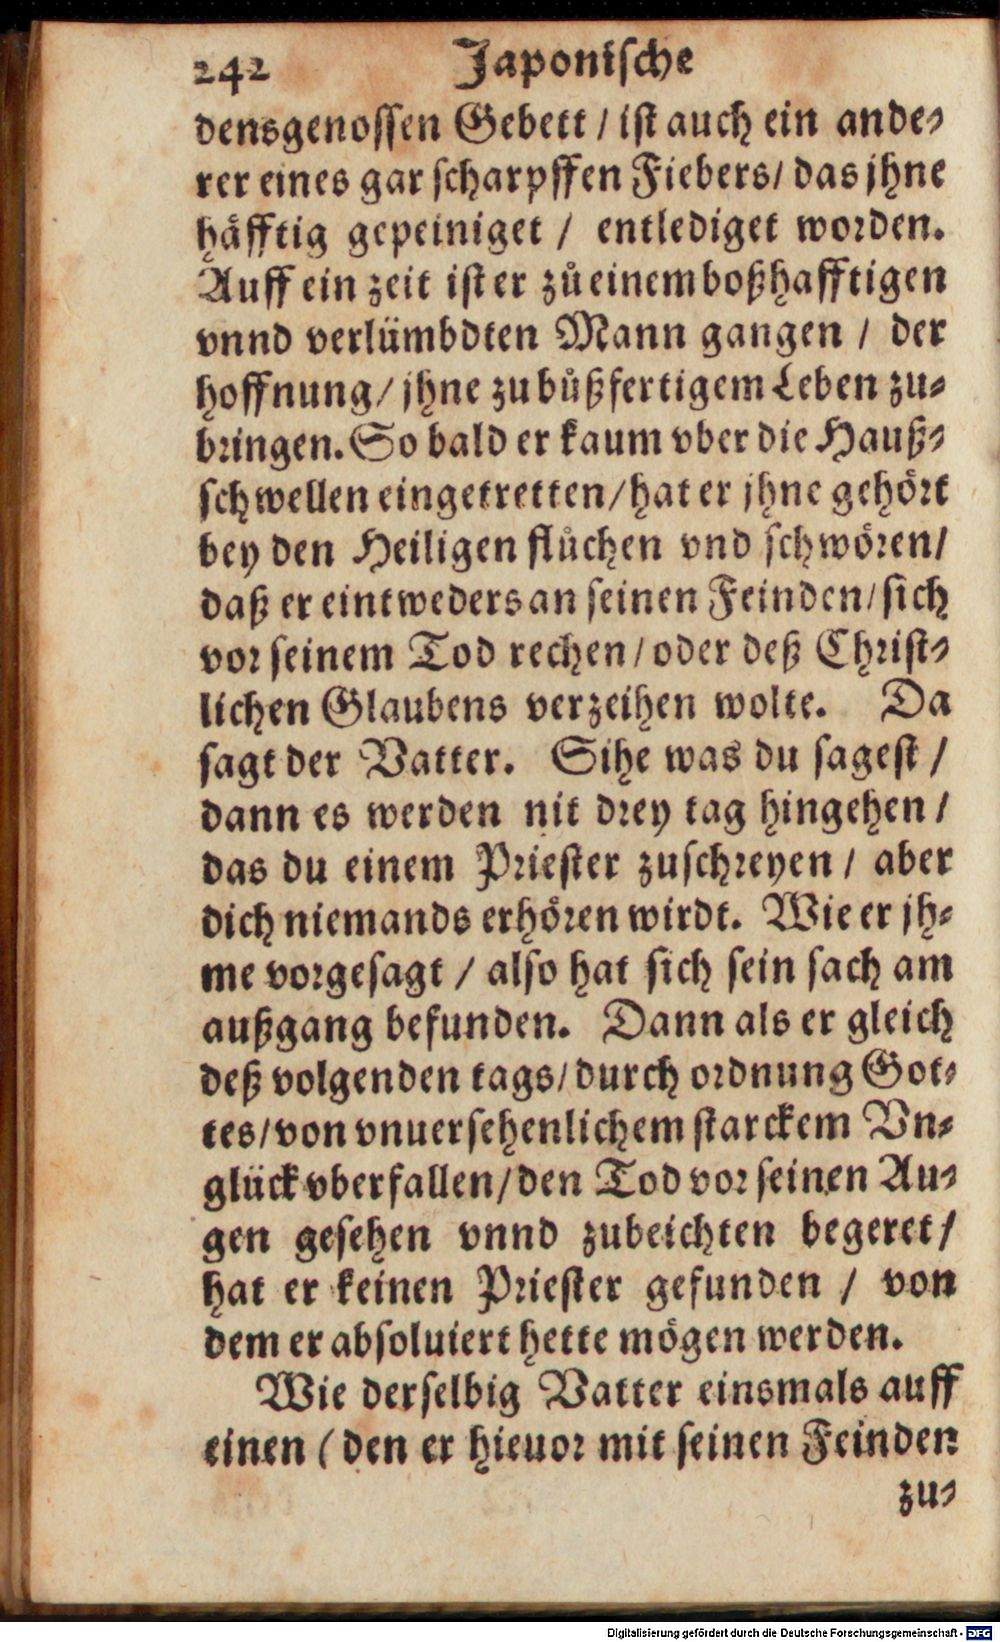 242 Japonische
densgenossen Gebett / ist auch ein ande⸗
rer eines gar scharpffen Fiebers / das jhne
häfftig gepeiniget / entlediget worden.
Auff ein zeit ist er zů einem boßhafftigen
vnnd verlümbdten Mann gangen / der
hoffnung / jhne zu bůßfertigem Leben zu⸗
bringen. So bald er kaum vber die Hauß⸗
schwellen eingetretten / hat er jhne gehört
bey den Heiligen flůchen vnd schwören /
daß er eintweders an seinen Feinden / sich
vor seinem Tod rechen / oder deß Christ⸗
lichen Glaubens verzeihen wolte. Da
sagt der Vatter. Sihe was du sagest /
dann es werden nit drey tag hingehen /
das du einem Priester zuschreyen / aber
dich niemands erhören wirdt. Wie er jh⸗
me vorgesagt / also hat sich sein sach am
außgang befunden. Dann als er gleich
deß volgenden tags / durch ordnung Got⸗
tes / von vnuersehenlichem starckem Vn⸗
glück vberfallen / den Tod vor seinen Au⸗
gen gesehen vnnd zubeichten begeret /
hat er keinen Priester gefunden / von
dem er absoluiert hette mögen werden.
Wie derselbig Vatter einsmals auff
einen ( den er hieuor mit seinen Feinden
zu⸗
Digitalisierung gefördert durch die Deutsche Forschungsgemeinschaft - DFG